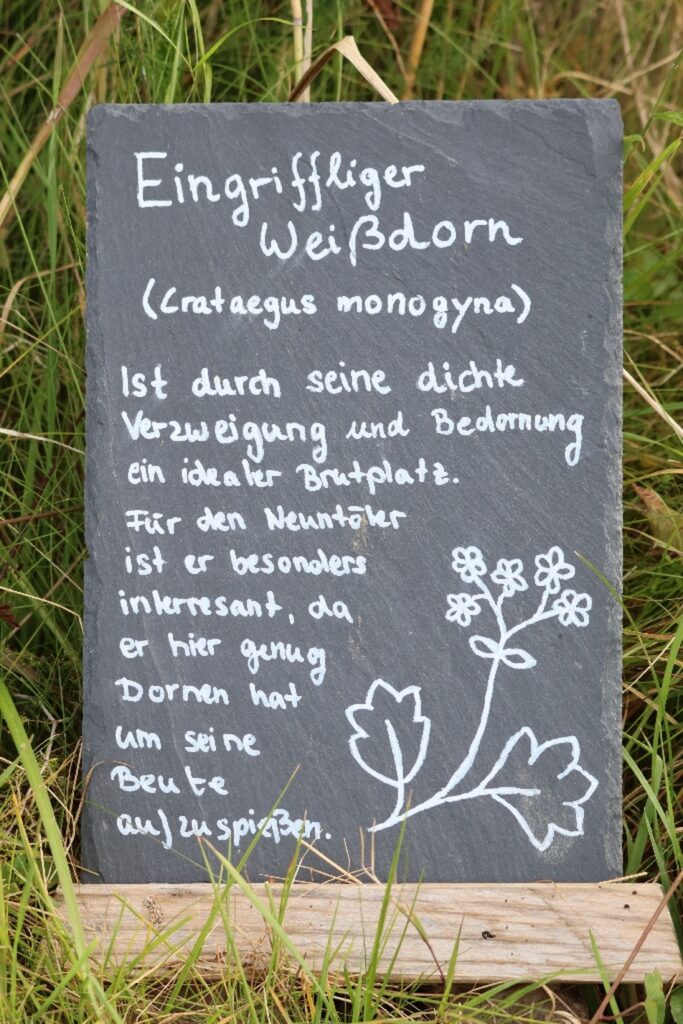 Eingriffliger
Weißdorn
(Crataegus monogyna)
Ist durch seine dichte
Verzweigung und Bedornung
ein idealer Brutplatz.
Für den Neuntöter
ist er besonders
interresant, da
er hier genug
Dornen hat
um seine
Beute
aufzuspießen.